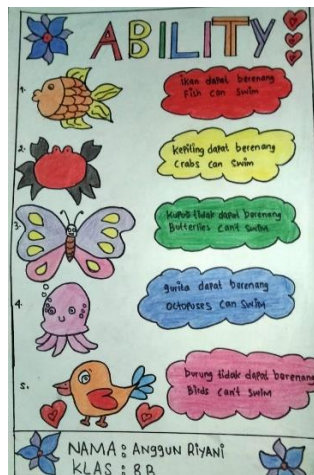 ABILITY
1.
ikan dapat berenang
Fish can swim
2.
kepiting dapat berenang
Crabs can swim
3.
kupu2 tidak dapat berenang
Butterflies can't swim
4.
gurita dapat berenang
Octopuses can swim
5.
burung tidak dapat berenang
Birds can't swim
NAMA : ANGGUN RIYANI
KLAS : 8B